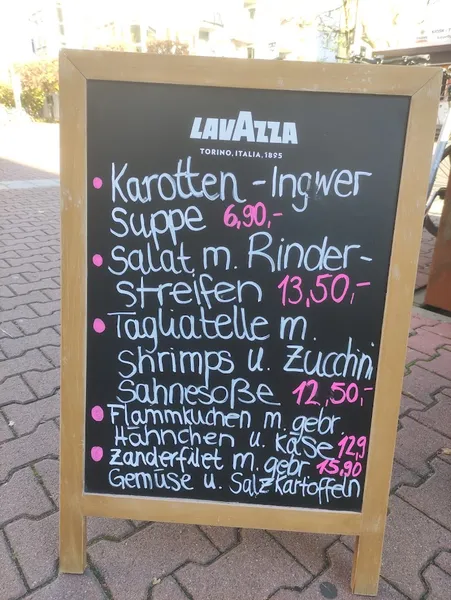 LAVAZZA
TORINO, ITALIA, 1895
• Karotten-Ingwer
Suppe 6,90,-
• Salat m. Rinder-
streifen 13,50,-
• Tagliatelle m.
Shrimps u. Zucchini
Sahnesoße 12,50,-
• Flammkuchen m. gebr.
Hähnchen u. Käse 12,9
• Zanderfilet m. gebr. 15,90
Gemüse u. Salzkartoffeln